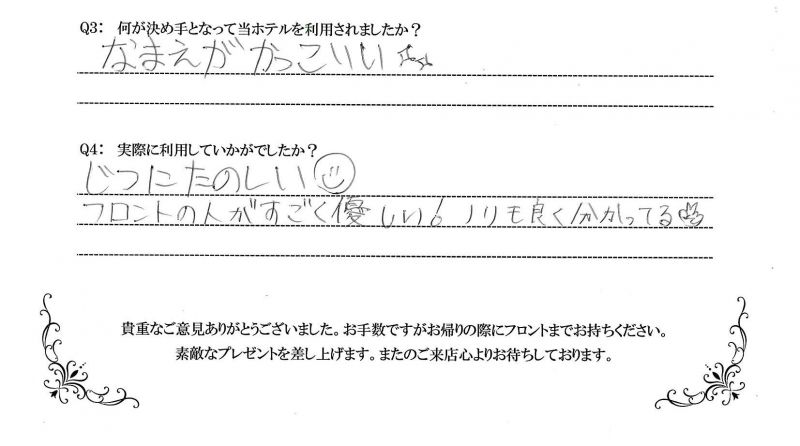 Q3: 何が決め手となって当ホテルを利用されましたか？
なまえがかっこいい☆☆
Q4: 実際に利用していかがでしたか？
じつにたのしい☺
フロントの人がすごく優しい！ノリも良く分かってる
貴重なご意見ありがとうございました。お手数ですがお帰りの際にフロントまでお持ちください。
素敵なプレゼントを差し上げます。またのご来店心よりお待ちしております。